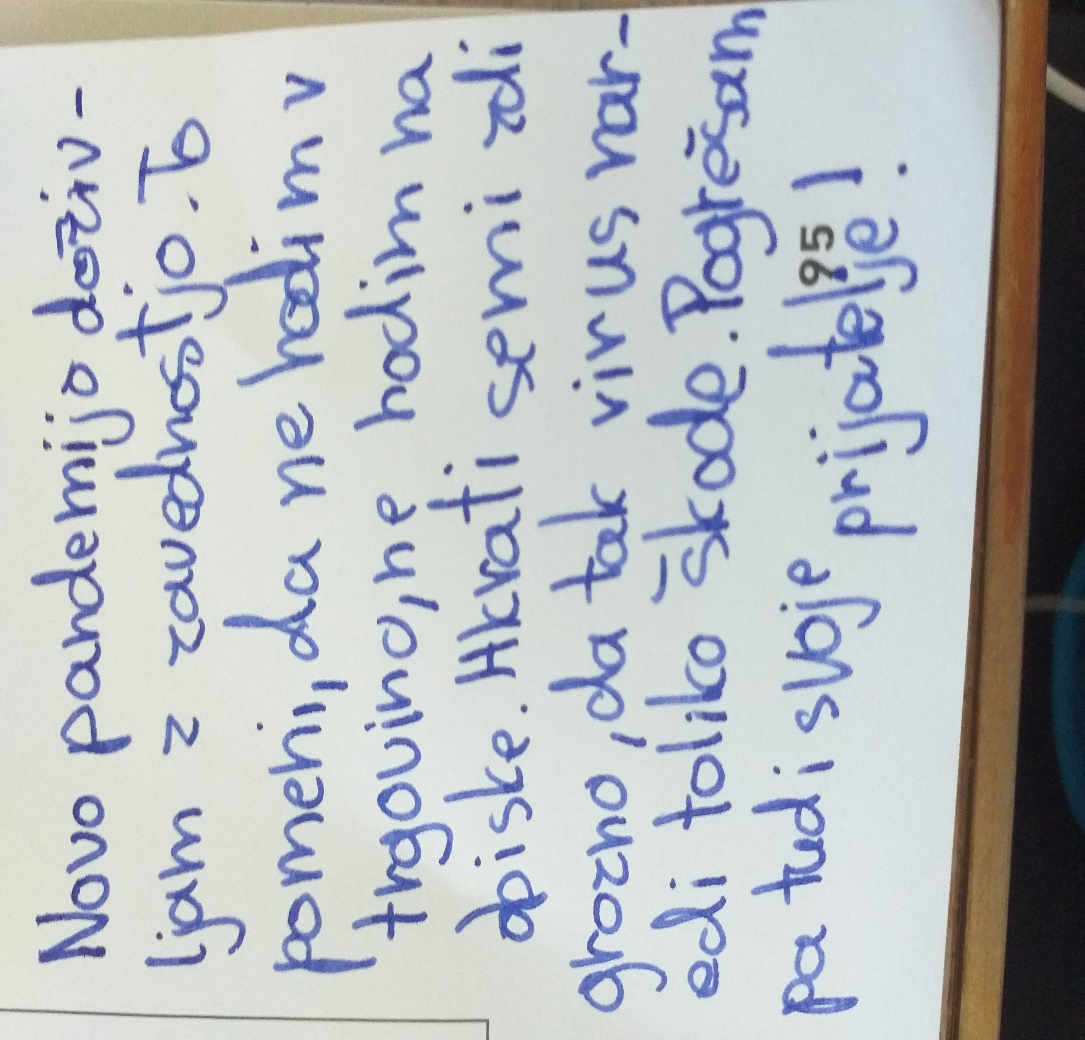 Novo pandemijo doživ-
ljam z zavednostjo. To
pomeni, da ne hodim v
trgovino, ne hodim na
obiske. Hkrati se mi zdi
grozno, da tak virus nar-
edi toliko škode. Pogrešam
pa tudi svoje prijatelje!
95